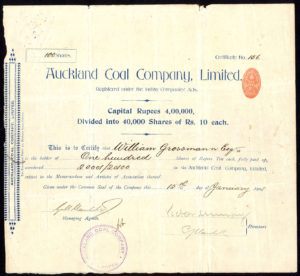 100 Shares.
Certificate No. 156
Auckland Coal Company, Limited.
Registered under the Indian Companies' Act.
Capital Rupees 4,00,000,
Divided into 40,000 Shares of Rs. 10 each.
This is to Certify that William Grossmann Esq.
is the holder of One hundred Shares of Rupees Ten each, fully paid up,
numbered in the Auckland Coal Company, Limited,
subject to the Memorandum and Articles of Association thereof
Given under the Common Seal of the Company this 10th day of January
Managing Agents.
Directors